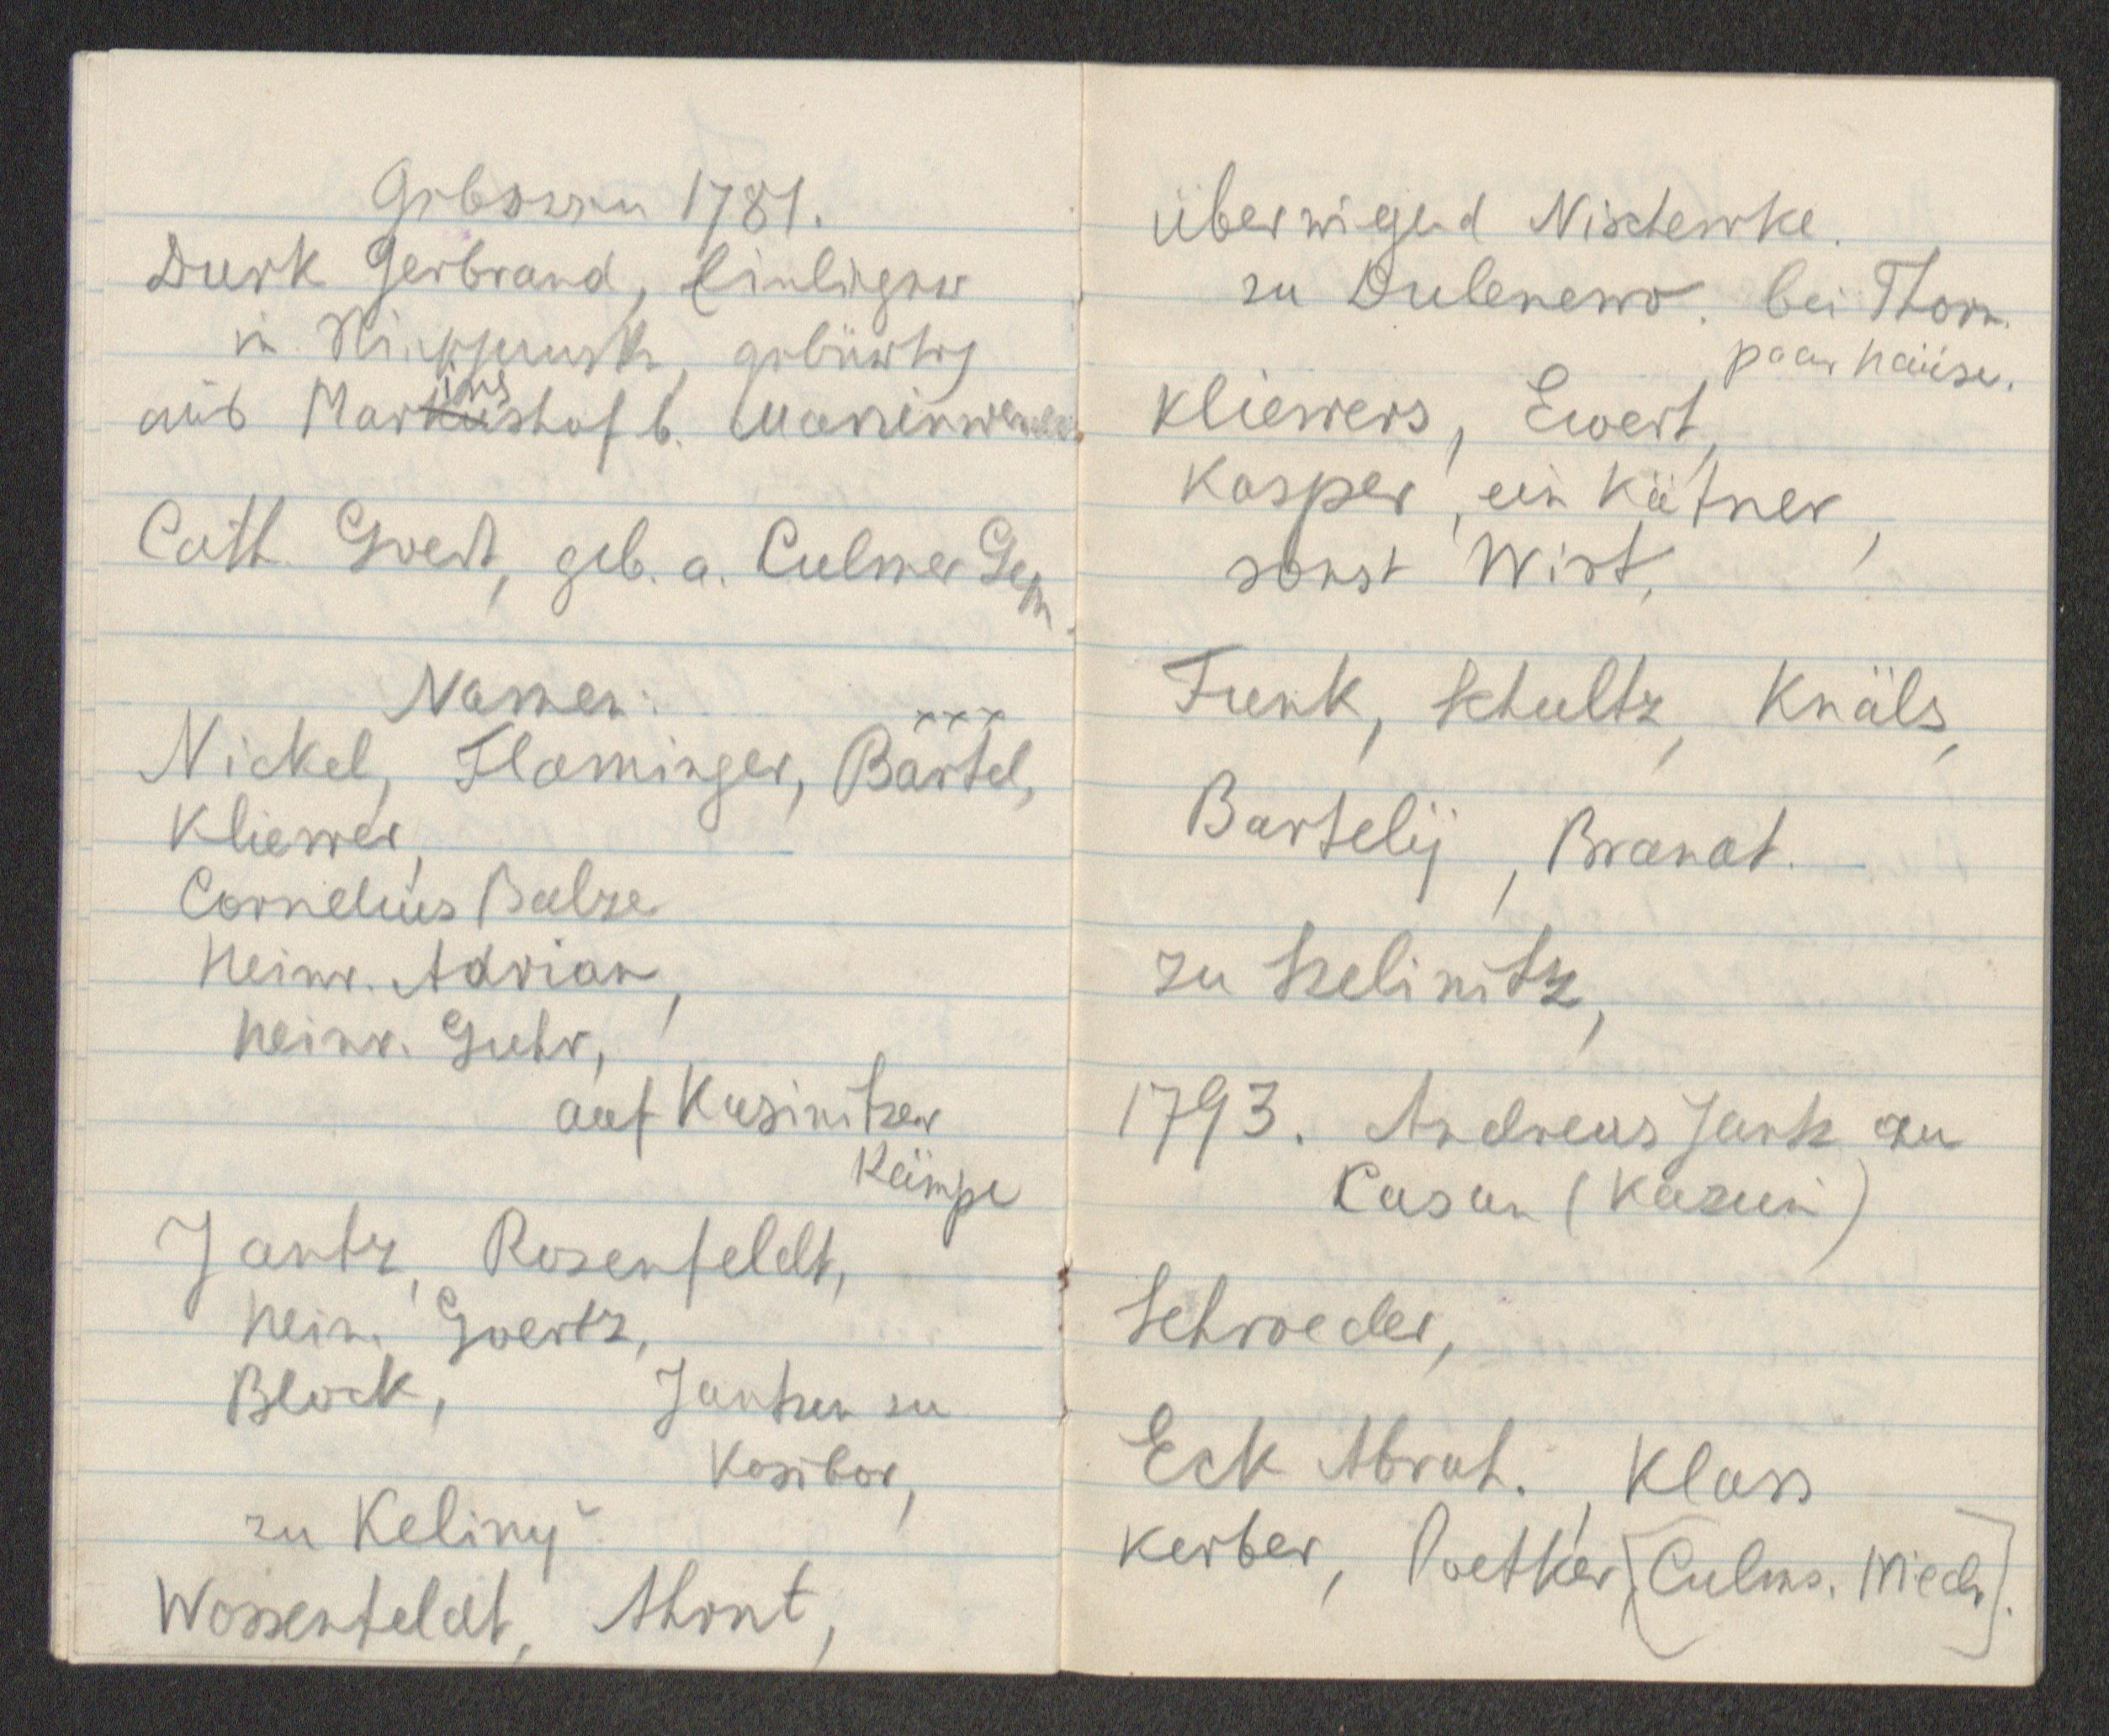 Geboren 1781.
Durk Gerbrand, Einlieger
in gebürtig
aus Markushof b.
ius
Cath. Goert, geb. a. Culmer Gem.
Namen:
Nickel, Flaminger, Bärtel,
Kliewer,
Cornelius Balzer
Heinr. Adrian,
Heinr. Guhr,
auf Kusinitzer
Kämpe
Jantz, Rosenfeldt,
Hein. Goertz,
Block, Jantzen zu
Kosibor,
zu Keliny
Wossenfeldt, Ahrnt,
überwigend Nischewke.
zu Dulenewo. bei Thorn.
paar Häuser.
Kliewers, Ewert,
Kasper, ein Kätner,
sonst Wirt,
Funk, Schultz, Knäls,
Bartelij, Brandt.
zu Szelinitz,
1793. Andreas Jantz zu
Casan (Kazuń)
Schroeder,
Eck Abrah., Klass
Kerber, Poetker, [Culms. Niedr].